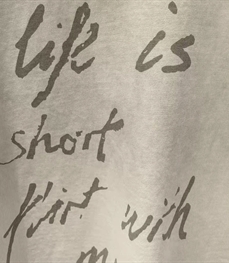 life is
short
flirt with
m